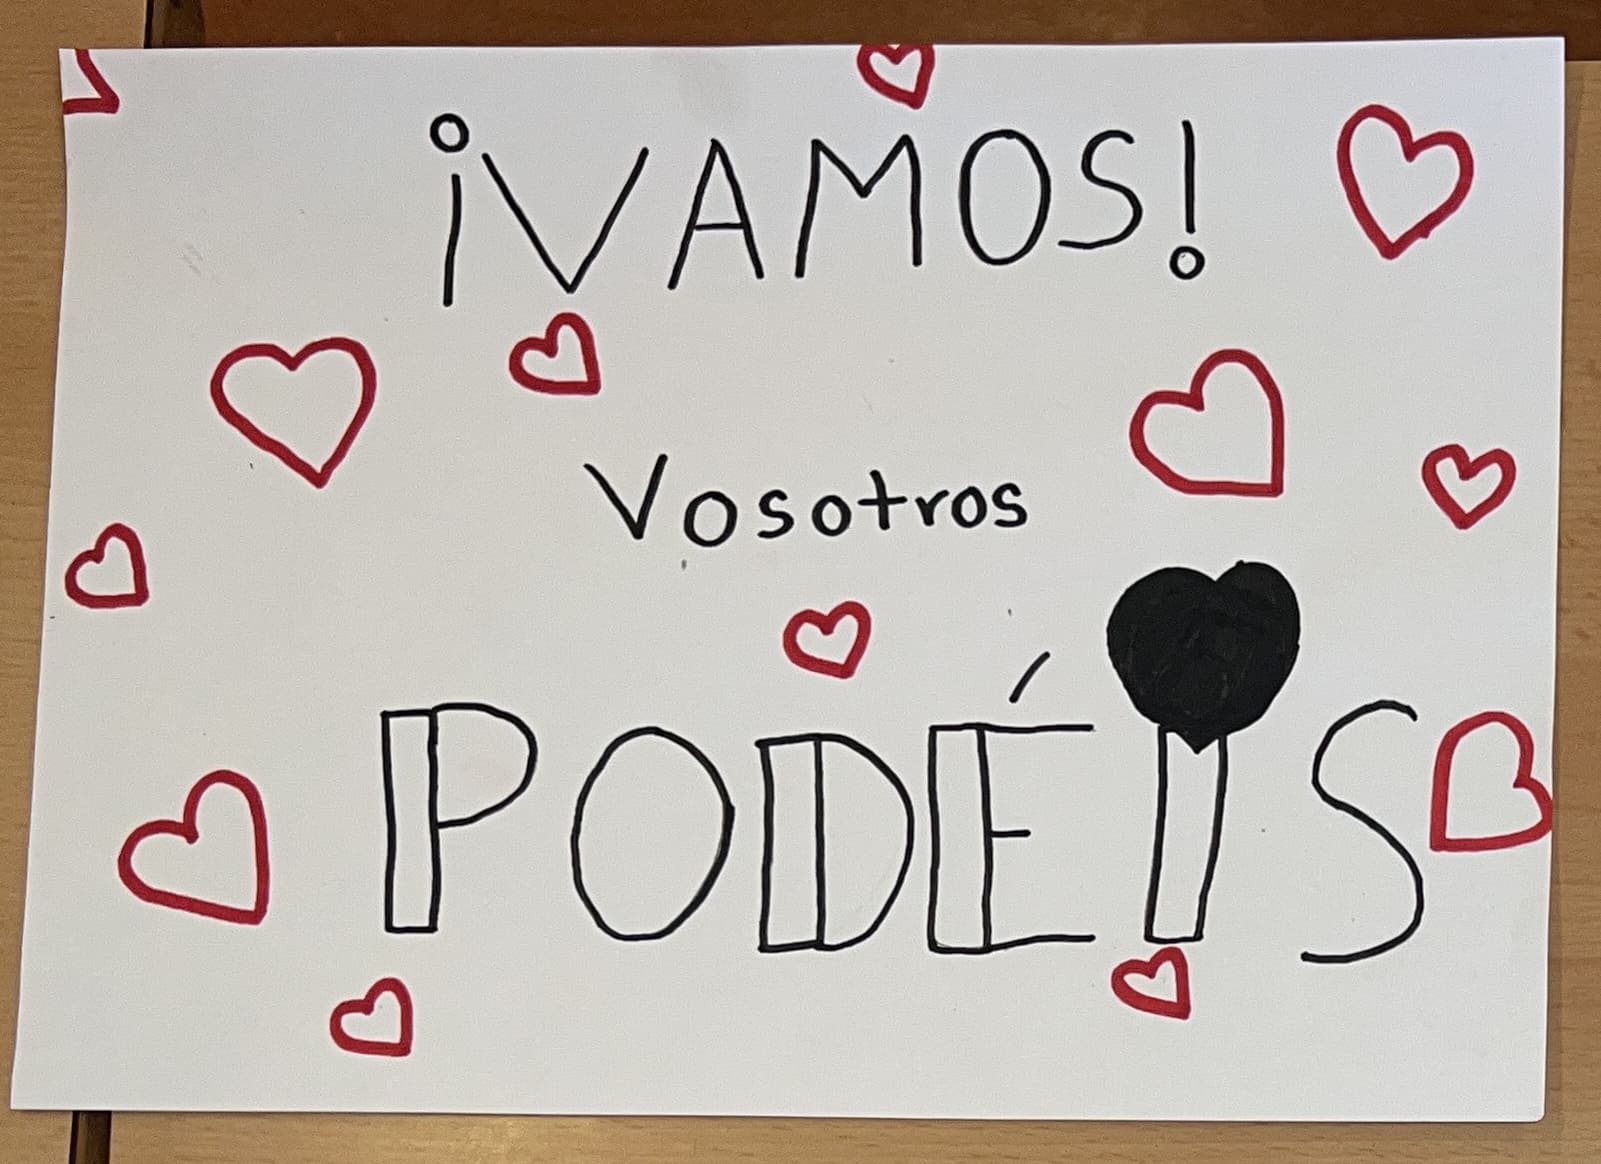 ¡VAMOS!
Vosotros
PODÉIS